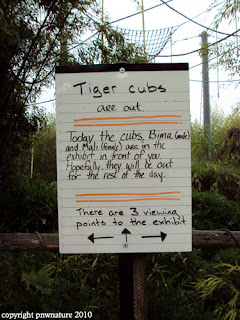 Tiger cubs
are out.
Today the cubs, Bima (male)
and Mali (female) are in the
exhibit in front of you.
Hopefully they will be out
for the rest of the day.
There are 3 viewing
points to the exhibit
copyright pnwnature 2010